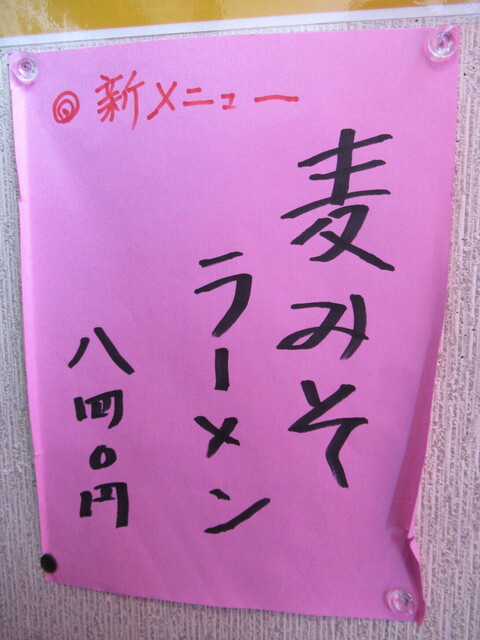 ◎新メニュー
麦みそ
ラーメン
八四〇円